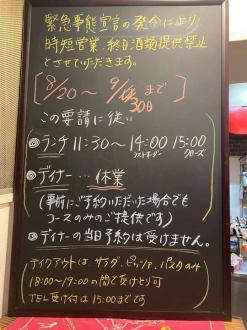 緊急事態宣言の発令により
時短営業、終日酒類提供禁止
とさせていただきます。
[8/20〜9/ まで]
30日
この要請に従い
◎ランチ11:30〜14:00 15:00
ラストオーダー クローズ
◎ディナー…休業
(事前にご予約いただいた場合でも
コースのみのご提供です)
◎ディナーの当日予約は受けません。
テイクアウトは サラダ、ピッツァ、パスタのみ
18:00〜19:00の間で受けとり可
TEL受け付は15:00までです